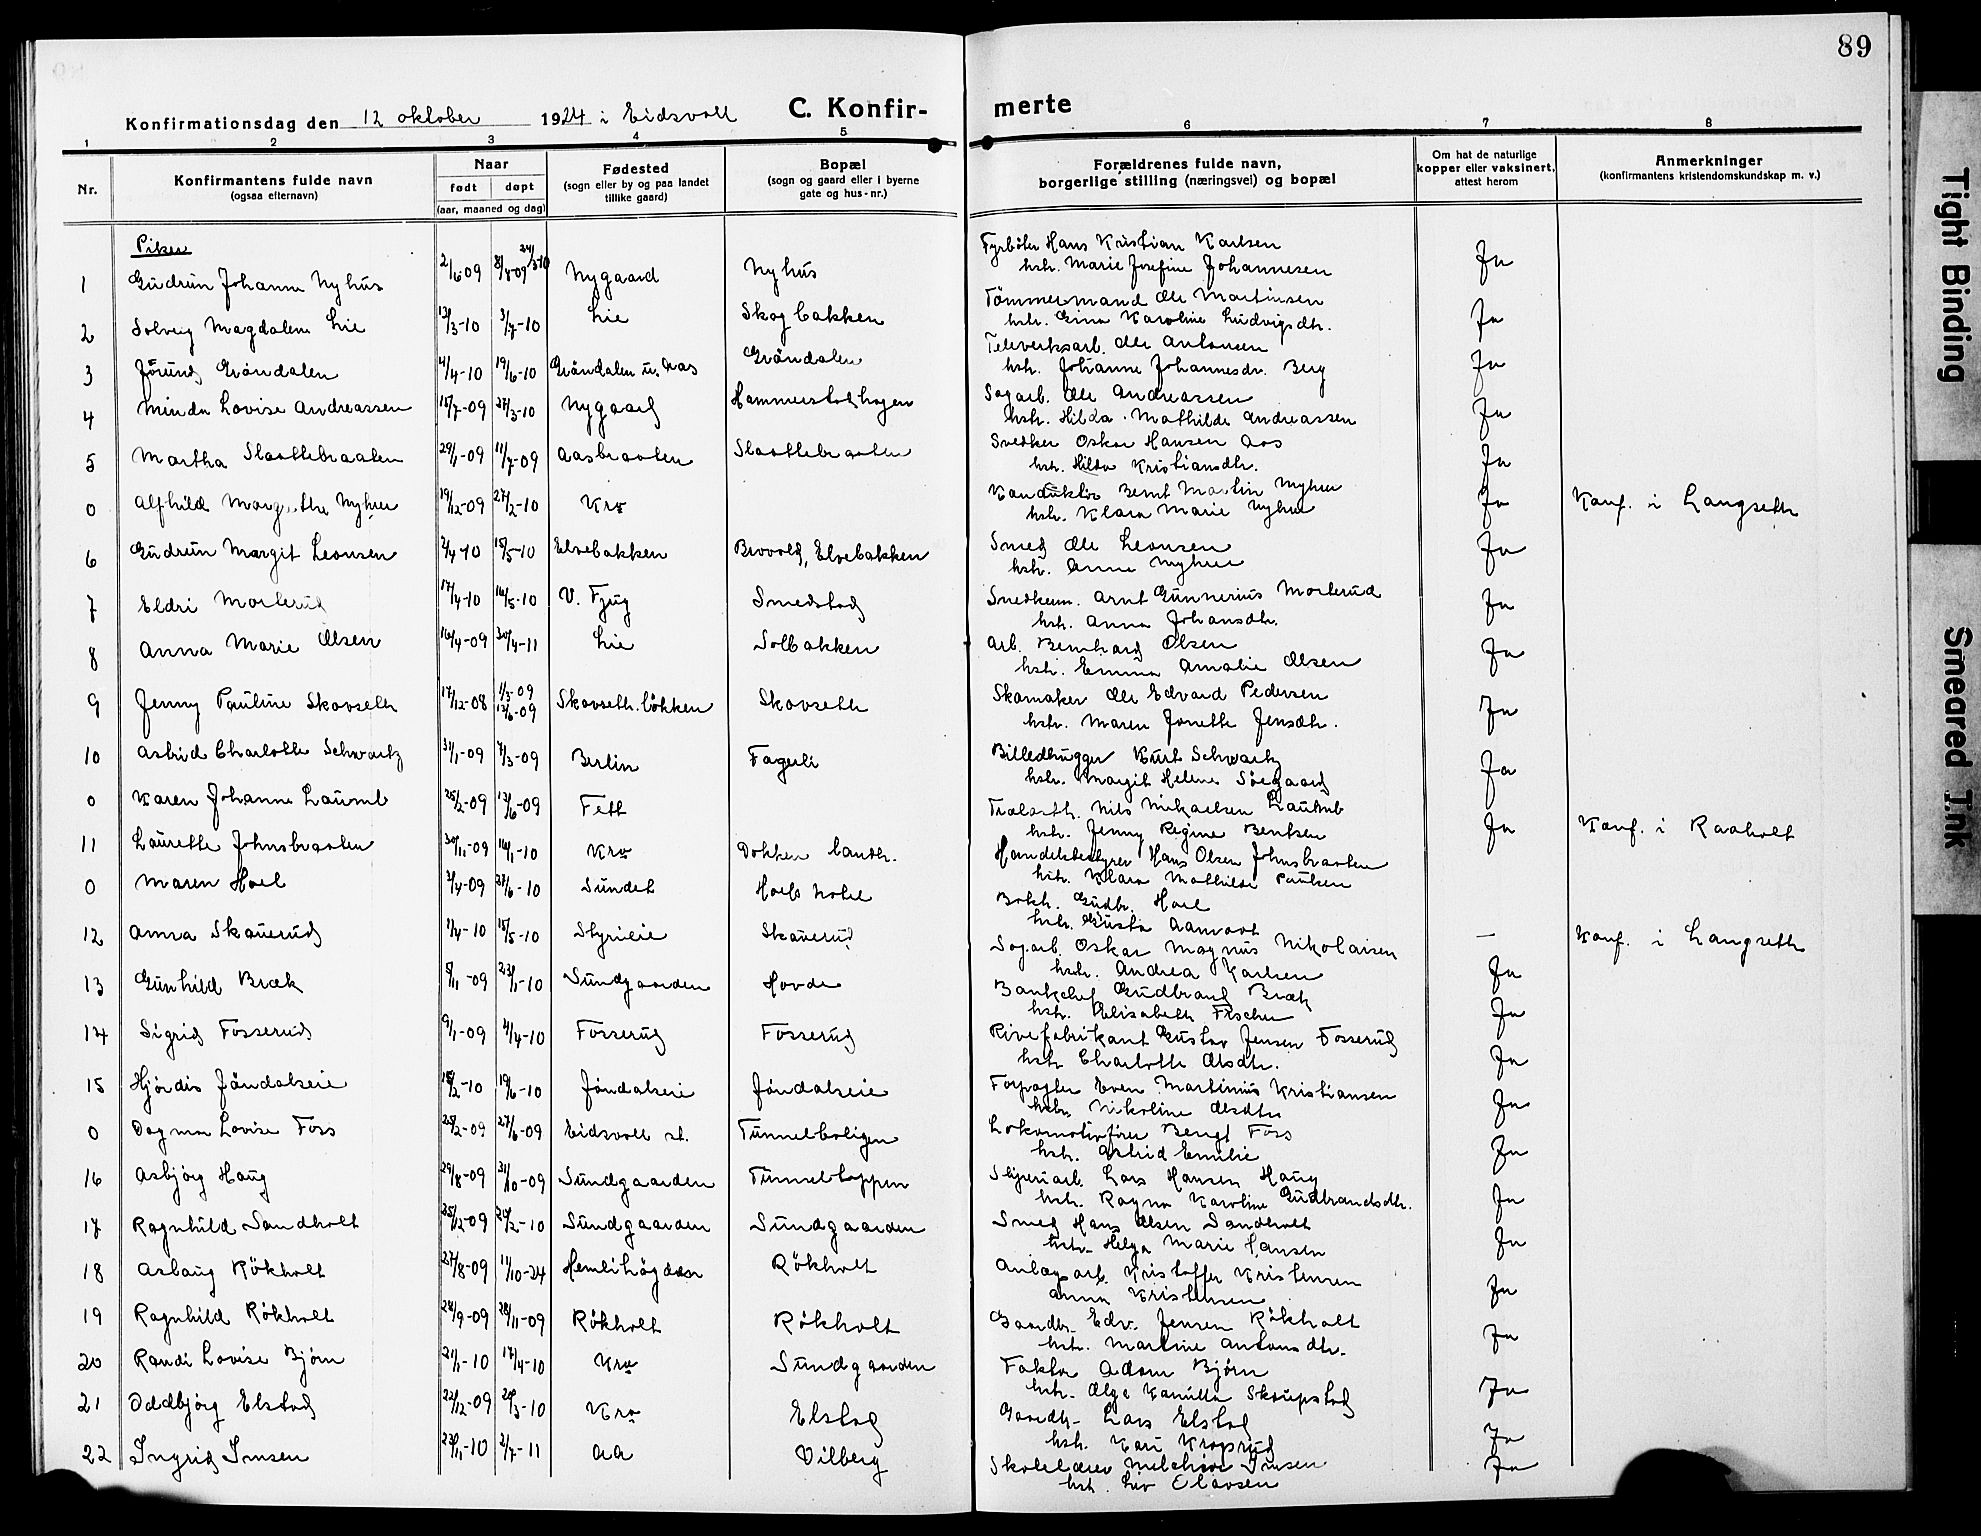 89
Konfirmationsdag den 12 oktober 1924 i Eidsvoll C. Konfir- merte
1 2 3 4 5 6 7 8
Nr. Konfirmantens fulde navn (ogsaa efternavn) Naar født døpt (aar, maaned og dag) Fødested (sogn eller by og paa landet tillike gaard) Bopæl (sogn og gaard eller i byerne gate og hus-nr.) Forældrenes fulde navn, borgerlige stilling (næringsvei) og bopæl Om hat de naturlige kopper eller vaksinert, attest herom Anmerkninger (konfirmantens kristendomskundskap m. v.)
Piker
1 Gudrun Johanne Nyhus 2/6 09 8/8-09 24/3 10 Nygaard Nyhus Fyrbøter Hans Kristian Karlsen Ja
hstr. Marie Josefine Johannesen
2 Solveig Magdalene Lie 13/3-10 3/7-10 Lie Skogbakken Tømmermand Ole Martinsen Ja
hstr. Gina Karoline Ludvigsdtr.
3 Jørund Grøndalen 4/4-10 19/6-10 Grøndalen u. Aas Grøndalen Televerksarb. Ole Antonsen Ja
hstr. Johanne Johannesdr. Berg
4 Minda Lovise Andreassen 15/7-09 27/3-10 Nygaard Hammerstadhagen Sagarb. Ole Andreassen Ja
hstr. Hilda Mathilde Andreassen
5 Martha Slaattebraaten 29/1-09 11/7-09 Aasbraaten Slaattebraaten Snedker Oskar Hansen Aas Ja
hstr. Hilda Kristiansdtr.
0 Alfhild Margrethe Myhrer 19/12-09 27/2-10 Kro Konduktør Bernt Martin Myhrer Ja Konf. i Langseth
hstr. Klara Marie Myhrer
6 Gudrun Margit Leonsen 2/4-10 15/5-10 Elvebakken Brovold, Elvebakken Smed Ole Leonsen Ja
hstr. Anne Myhrer
7 Eldri Morterud 17/4-10 16/5-10 V. Fjug Smedstad Snedkerm. Arnt Gunnerius Morterud Ja
hstr. Anna Johansdtr.
8 Anna Marie Olsen 16/4-09 30/4-11 Lie Solbakken Arb. Bernhard Olsen Ja
hstr. Emma Amalie Olsen
9 Jenny Pauline Skovseth 17/12-08 1/3-09 13/6-09 Skovseth.løkken Skovseth Skomaker Ole Edvard Pedersen Ja
hstr. Maren Jonette Jensdtr.
10 Astrid Charlotte Schwartz 31/1-09 7/3-09 Berlin Fagerli Billedhugger Kurt Schwartz Ja
hstr. Margit Helene Søegaard
0 Karen Johanne Laumb 25/2-09 13/6-09 Fett Nils Mikaelsen Laumb Ja Konf. i Raaholt
hstr. Jenny Regine Bentsen
11 Laurette Johnsbraaten 30/11-09 16/1-10 Kro Dokken landh. Handelsbestyrer Hans Olsen Johnsbraaten
hstr. Klara Mathilde Paulsen
0 Maren Hoel 3/4-09 29/6-10 Sundet Hoels hotel Gudbr. Hoel — Konf. i Langseth
hstr. Gusta Aamodt
12 Anna Skauerud 1/4-10 15/5-10 Styrieie Skauerud Sagarb. Oskar Magnus Nikolaisen Ja
hstr. Andrea Karlsen
13 Gunhild Bræk 5/11-09 23/1-10 Sundgaarden Hovde Bankchef Gudbrand Bræk Ja
hstr. Elisabeth Fischer
14 Sigrid Fosserud 9/1-09 4/4-10 Fosserud Fosserud Rivefabrikant Gustav Jensen Fosserud Ja
hstr. Charlotte Olsdtr.
15 Hjørdis Jøndalseie 15/2-10 19/6-10 Jøndalseie Jøndalseie Forpagter Even Martinius Kristiansen Ja
hstr. Nikoline Olsdtr.
0 Dagmar Lovise Foss 25/2-09 27/6-09 Eidsvoll st. Tunnelboligen Lokomotivfører Bengt Foss Ja
hstr. Astrid Emilie
16 Asbjørg Haug 29/8-09 31/10-09 Sundgaarden Tunneltoppen Lars Hansen Haug Ja
hstr. Ragna Karoline Gudbrandsdtr.
17 Ragnhild Sandholt 25/12-09 20/2-10 Sundgaarden Sundgaarden Smed Hans Olsen Sandholt Ja
hstr. Helga Marie Hansen
18 Aslaug Røkholt 27/8-09 11/10-24 Hemlihøgda Røkholt Anlægsarb. Kristoffer Kristensen Ja
Anna Kristensen
19 Ragnhild Røkholt 24/9-09 28/11-09 Røkholt Røkholt Gaardbr. Edv. Jensen Røkholt Ja
hstr. Martine Antonsdtr.
20 Randi Lovise Bjørn 21/1-10 17/4-10 Kro Sundgaarden Faktor Adam Bjørn Ja
hstr. Olga Kamilla Skaugstad
21 Oddbjørg Elstad 22/12-09 20/3-10 Kro Elstad Gaardbr. Lars Elstad Ja
hstr. Kari Kroprud
22 Ingrid Imsen 23/11-10 2/7-11 Aa Vilberg Skolelærer Melchior Imsen Ja
hstr. Liv Olavsen
Tight Binding
Smeared Ink